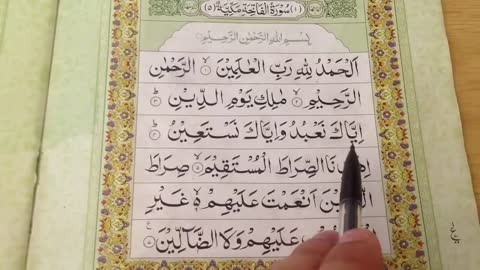 سُوْرَةُ الْفَاتِحَةِ مَكِّيَّةٌ
بِسْمِ اللّٰهِ الرَّحْمٰنِ الرَّحِيْمِ
اَلْحَمْدُ لِلّٰهِ رَبِّ الْعٰلَمِيْنَ ۙ﴿۱﴾ الرَّحْمٰنِ
الرَّحِيْمِ ۙ﴿۲﴾ مٰلِكِ يَوْمِ الدِّيْنِ ؕ﴿۳﴾
اِيَّاكَ نَعْبُدُ وَاِيَّاكَ نَسْتَعِيْنُ ؕ﴿۴﴾
نَا الصِّرَاطَ الْمُسْتَقِيْمَ ۙ﴿۵﴾ صِرَاطَ
اَنْعَمْتَ عَلَيْهِمْ ۙ۬ غَيْرِ
عَلَيْهِمْ وَلَا الضَّآلِّيْنَ